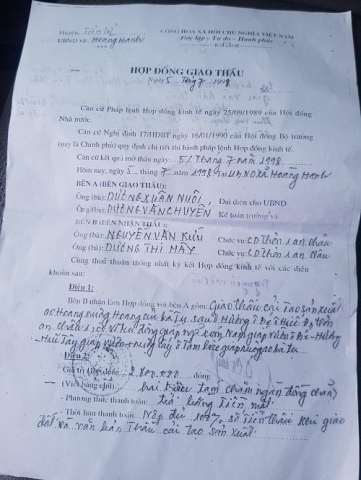 Huyện: Tiên Lữ
UBND xã: Hoàng Hanh
CỘNG HOÀ XÃ HỘI CHỦ NGHĨA VIỆT NAM
Độc lập - Tự do - Hạnh phúc
HỢP ĐỒNG GIAO THẦU
Ngày 5 Thg 7 1998
Căn cứ Pháp lệnh Hợp đồng kinh tế ngày 25/09/1989 của Hội đồng
Nhà nước.
Căn cứ Nghị định 17/HĐBT ngày 16/01/1990 của Hội đồng Bộ trưởng
(nay là Chính phủ) quy định chi tiết thi hành pháp lệnh Hợp đồng kinh tế.
Căn cứ kết quả mở thầu ngày 5 / tháng 7 năm 1998
Hôm nay, ngày 5 7 1998 xã Hoàng Hanh
BÊN A (BÊN GIAO THẦU):
Ông (bà): DƯƠNG XUÂN NUÔI Đại diện cho UBND
Ông (bà): DƯƠNG VĂN CHUYỂN Kế toán trưởng xã
BÊN B (BÊN NHẬN THẦU):
Ông (bà): NGUYỄN VĂN BỬU Chức vụ: CD Thôn an châu
Ông (bà): DƯƠNG THỊ MÂY Chức vụ: CD Thôn an châu
Cùng thoả thuận thống nhất ký kết Hợp đồng kinh tế với các điều
khoản sau:
Điều 1:
Bên B nhận làm Hợp đồng với bên A gồm: Giao thầu cải Tạo sản xuất
Điều 2:
- Giá trị Hợp đồng: 2.800.000 đồng
- (Viết bằng chữ): hai triệu Tám trăm ngàn đồng chẵn
- Phương thức thanh toán: trả bằng Tiền mặt
- Thời hạn thanh toán: Nộp đủ 100% số Tiền thầu khi giao
đất và văn bản Thầu cải tạo sản xuất